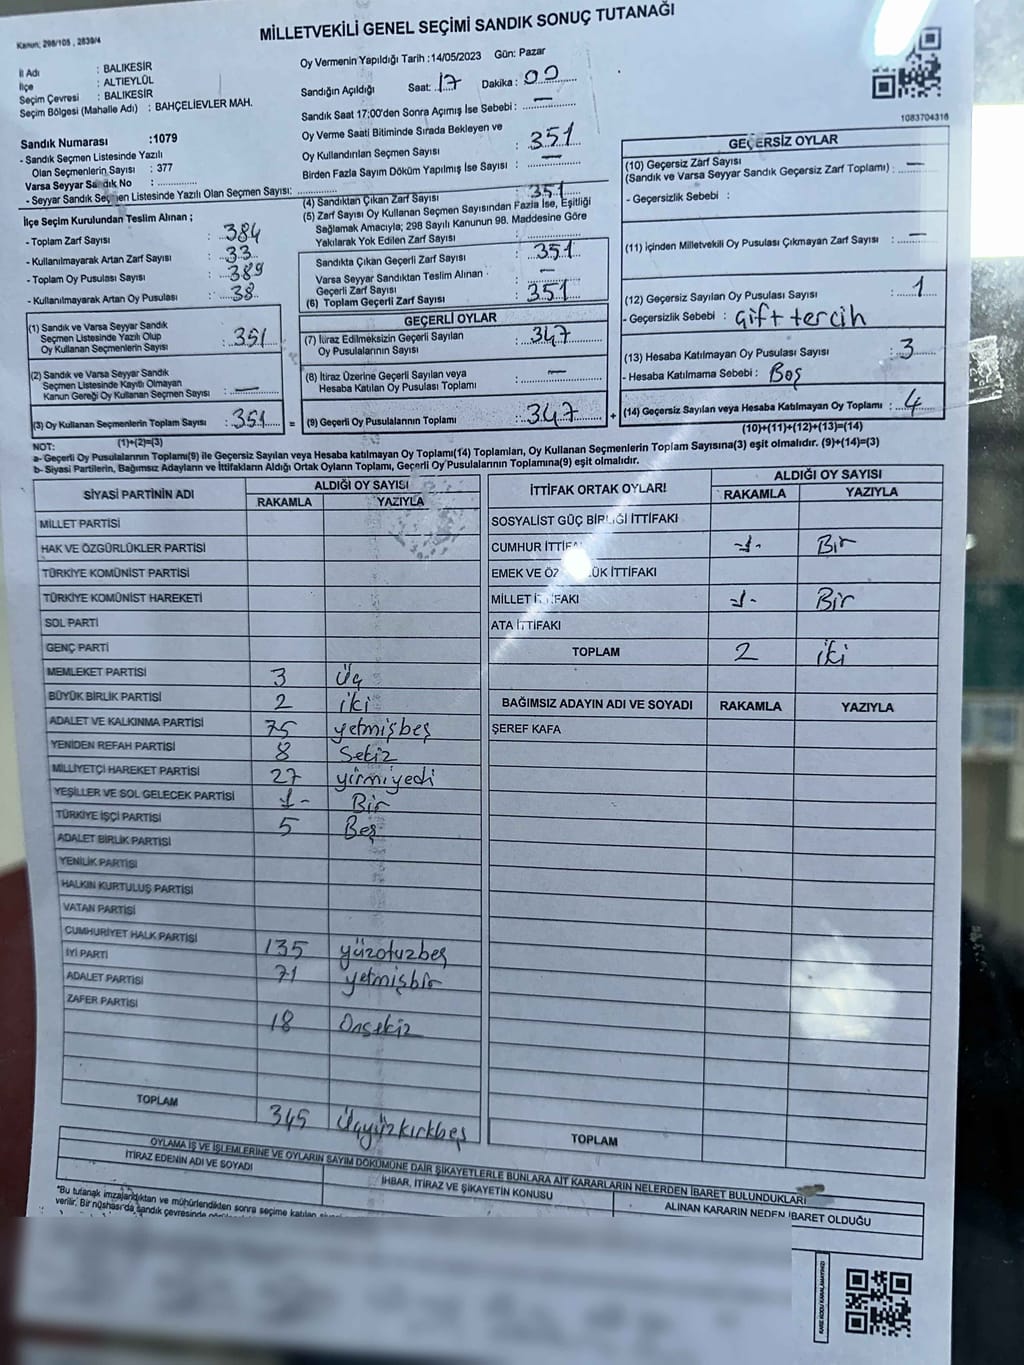 MİLLETVEKİLİ GENEL SEÇİMİ SANDIK SONUÇ TUTANAĞI
Kanun; 298/105 , 2839/4
İl Adı : BALIKESİR
İlçe : ALTIEYLÜL
Seçim Çevresi : BALIKESİR
Seçim Bölgesi (Mahalle Adı) : BAHÇELİEVLER MAH.
Sandık Numarası :1079
- Sandık Seçmen Listesinde Yazılı
Olan Seçmenlerin Sayısı : 377
Varsa Seyyar Sandık No :
- Seyyar Sandık Seçmen Listesinde Yazılı Olan Seçmen Sayısı:
İlçe Seçim Kurulundan Teslim Alınan ;
- Toplam Zarf Sayısı : 384
- Kullanılmayarak Artan Zarf Sayısı : 33
- Toplam Oy Pusulası Sayısı : 389
- Kullanılmayarak Artan Oy Pusulası : 38
(1) Sandık ve Varsa Seyyar Sandık
Seçmen Listesinde Yazılı Olup
Oy Kullanan Seçmenlerin Sayısı : 351
(2) Sandık ve Varsa Seyyar Sandık
Seçmen Listesinde Kayıtlı Olmayan
Kanun Gereği Oy Kullanan Seçmen Sayısı : —
(3) Oy Kullanan Seçmenlerin Toplam Sayısı : 351 =
Oy Vermenin Yapıldığı Tarih :14/05/2023 Gün: Pazar
Sandığın Açıldığı Saat: 17 Dakika : 00
Sandık Saat 17:00'den Sonra Açımış İse Sebebi : —
Oy Verme Saati Bitiminde Sırada Bekleyen ve
Oy Kullandırılan Seçmen Sayısı : 351
Birden Fazla Sayım Döküm Yapılmış İse Sayısı : —
(4) Sandıktan Çıkan Zarf Sayısı : 351
(5) Zarf Sayısı Oy Kullanan Seçmen Sayısından Fazla İse, Eşitliği
Sağlamak Amacıyla; 298 Sayılı Kanunun 98. Maddesine Göre
Yakılarak Yok Edilen Zarf Sayısı :
Sandıkta Çıkan Geçerli Zarf Sayısı : 351
Varsa Seyyar Sandıktan Teslim Alınan
Geçerli Zarf Sayısı : —
(6) Toplam Geçerli Zarf Sayısı : 351
GEÇERLİ OYLAR
(7) İtiraz Edilmeksizin Geçerli Sayılan
Oy Pusulalarının Sayısı : 347
(8) İtiraz Üzerine Geçerli Sayılan veya
Hesaba Katılan Oy Pusulası Toplamı : —
(9) Geçerli Oy Pusulalarının Toplamı : 347 +
1083704316
GEÇERSİZ OYLAR
(10) Geçersiz Zarf Sayısı
(Sandık ve Varsa Seyyar Sandık Geçersiz Zarf Toplamı) : —
- Geçersizlik Sebebi :
(11) İçinden Milletvekili Oy Pusulası Çıkmayan Zarf Sayısı : —
(12) Geçersiz Sayılan Oy Pusulası Sayısı : 1
- Geçersizlik Sebebi : Çift tercih
(13) Hesaba Katılmayan Oy Pusulası Sayısı : 3
- Hesaba Katılmama Sebebi : Boş
(14) Geçersiz Sayılan veya Hesaba Katılmayan Oy Toplamı : 4
(10)+(11)+(12)+(13)=(14)
NOT: (1)+(2)=(3)
a- Geçerli Oy Pusulalarının Toplamı(9) ile Geçersiz Sayılan veya Hesaba katılmayan Oy Toplamı(14) Toplamları, Oy Kullanan Seçmenlerin Toplam Sayısına(3) eşit olmalıdır. (9)+(14)=(3)
b- Siyasi Partilerin, Bağımsız Adayların ve İttifakların Aldığı Ortak Oyların Toplamı, Geçerli Oy Pusulalarının Toplamına(9) eşit olmalıdır.
SİYASİ PARTİNİN ADI ALDIĞI OY SAYISI
RAKAMLA YAZIYLA
MİLLET PARTİSİ
HAK VE ÖZGÜRLÜKLER PARTİSİ
TÜRKİYE KOMÜNİST PARTİSİ
TÜRKİYE KOMÜNİST HAREKETİ
SOL PARTİ
GENÇ PARTİ
MEMLEKET PARTİSİ 3 Üç
BÜYÜK BİRLİK PARTİSİ 2 iki
ADALET VE KALKINMA PARTİSİ 75 yetmişbeş
YENİDEN REFAH PARTİSİ 8 Sekiz
MİLLİYETÇİ HAREKET PARTİSİ 27 yirmiyedi
YEŞİLLER VE SOL GELECEK PARTİSİ -1- Bir
TÜRKİYE İŞÇİ PARTİSİ 5 Beş
ADALET BİRLİK PARTİSİ
YENİLİK PARTİSİ
HALKIN KURTULUŞ PARTİSİ
VATAN PARTİSİ
CUMHURİYET HALK PARTİSİ 135 yüzotuzbeş
İYİ PARTİ 71 yetmişbir
ADALET PARTİSİ
ZAFER PARTİSİ 18 Onsekiz
TOPLAM 345 Üçyüzkırkbeş
İTTİFAK ORTAK OYLARI ALDIĞI OY SAYISI
RAKAMLA YAZIYLA
SOSYALİST GÜÇ BİRLİĞİ İTTİFAKI
CUMHUR İTTİFA -1- Bir
EMEK VE ÖZ ÜK İTTİFAKI
MİLLET İTTİFAKI -1- Bir
ATA İTTİFAKI
TOPLAM 2 iki
BAĞIMSIZ ADAYIN ADI VE SOYADI RAKAMLA YAZIYLA
ŞEREF KAFA
TOPLAM
OYLAMA İŞ VE İŞLEMLERİNE VE OYLARIN SAYIM DÖKÜMÜNE DAİR ŞİKAYETLERLE BUNLARA AİT KARARLARIN NELERDEN İBARET BULUNDUKLARI
İTİRAZ EDENİN ADI VE SOYADI İHBAR, İTİRAZ VE ŞİKAYETİN KONUSU ALINAN KARARIN NEDEN İBARET OLDUĞU
*Bu tutanak imzalandıktan ve mühürlendikten sonra seçime katılan
verilir. Bir nüshası da sandık çevresinde